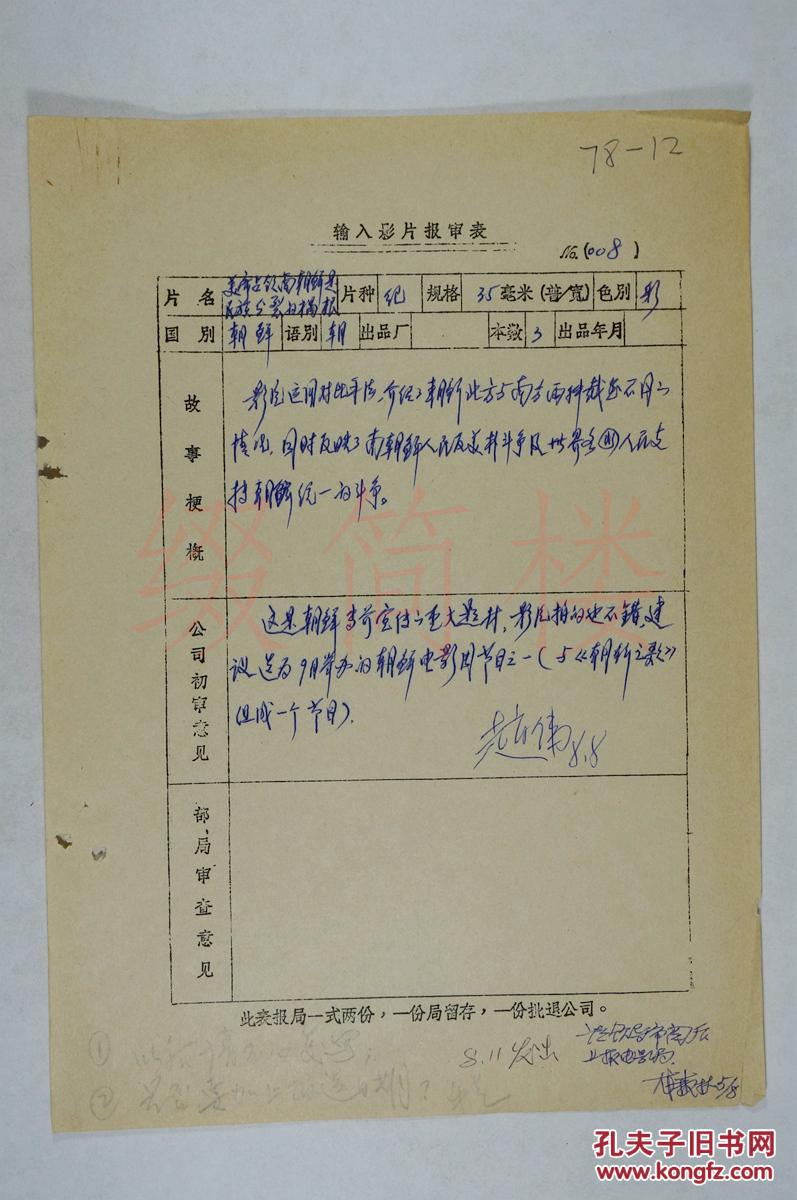 78-12
输入影片报审表
No. (008)
片名 美帝占领南朝鲜是民族分裂的祸根 片种 纪 规格 35毫米(普/宽) 色别 彩
国别 朝鲜 语别 朝 出品厂 本数 3 出品年月
故事梗概
影片运用对比手法,介绍了朝鲜北方与南方两种截然不同的
情况,同时反映了南朝鲜人民反美斗争及世界各国人民支
持朝鲜统一的斗争。
公司初审意见
这是朝鲜当前宣传的重大题材,影片拍的也不错,建
议选为9月举办的朝鲜电影周节目之一(与《朝鲜之歌》
组成一个节目)。
8.8
部、局审查意见
此表报局一式两份,一份局留存,一份批退公司。
①
8.11发出
上报电影局.
②
5/8
缀简楼
孔夫子旧书网
www.kongfz.com